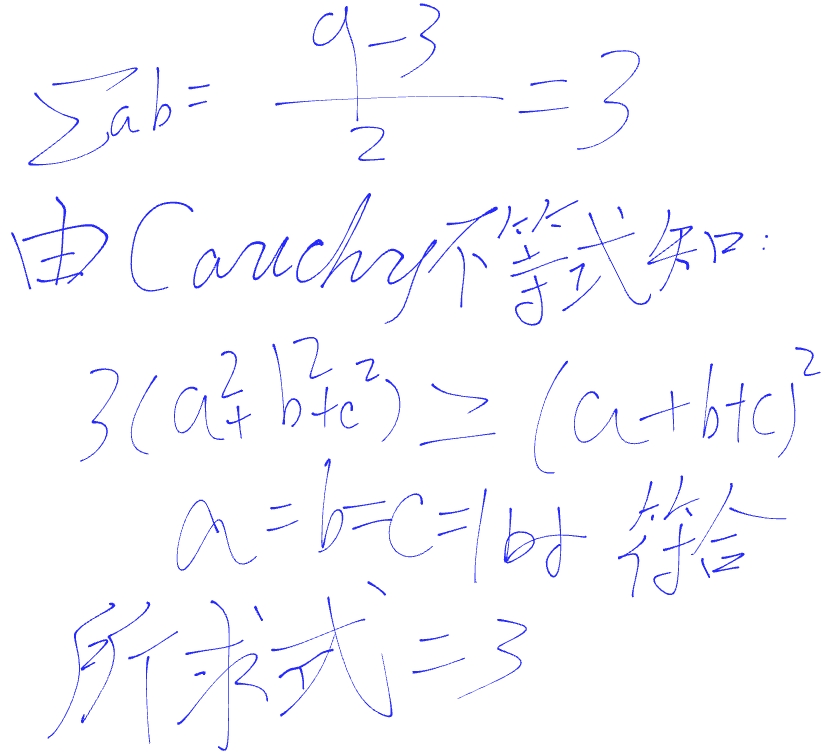 ∑ab = (9-3)/2 = 3
由Cauchy不等式知:
3(a²+b²+c²) ≥ (a+b+c)²
a=b=c=1时 符合
所求式=3